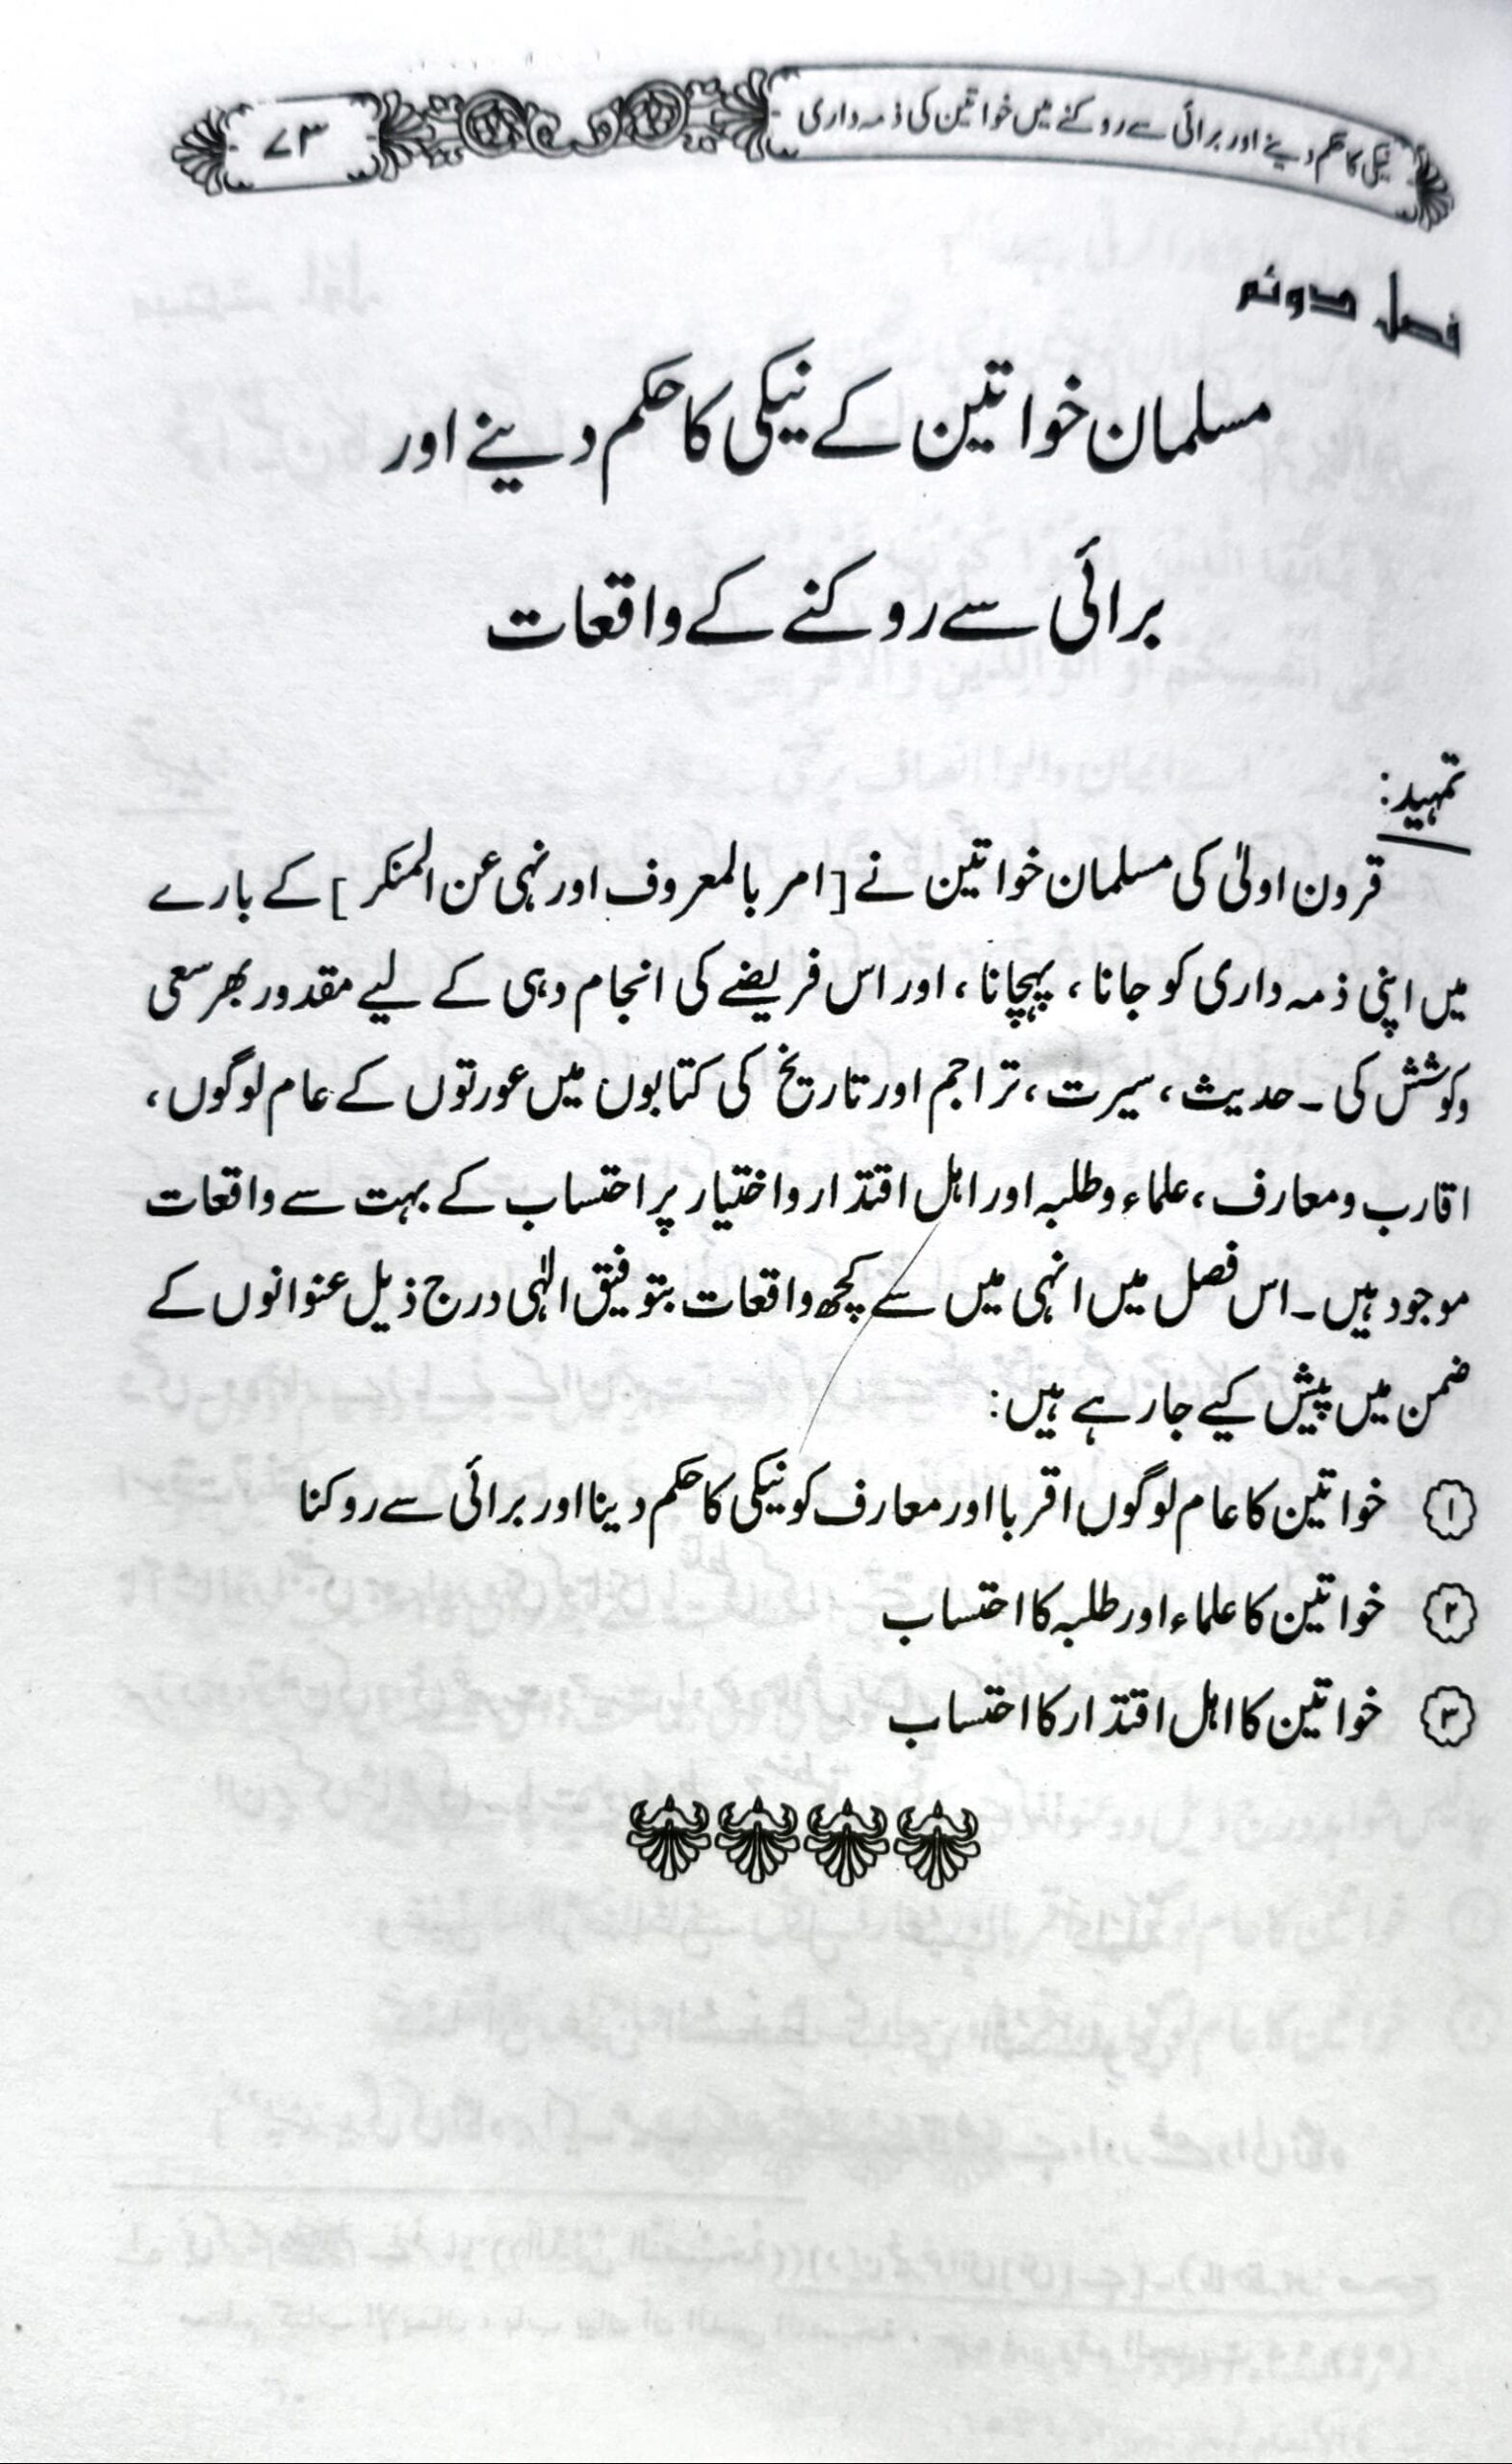 نیکی کا حکم دینے اور برائی سے روکنے میں خواتین کی ذمہ داری
۷۳
فصل دوئم
مسلمان خواتین کے نیکی کا حکم دینے اور
برائی سے روکنے کے واقعات
تمہید:
قرون اولیٰ کی مسلمان خواتین نے [امر بالمعروف اور نہی عن المنکر] کے بارے
میں اپنی ذمہ داری کو جانا، پہچانا، اور اس فریضے کی انجام دہی کے لیے مقدور بھر سعی
وکوشش کی۔ حدیث، سیرت، تراجم اور تاریخ کی کتابوں میں عورتوں کے عام لوگوں،
اقارب ومعارف، علماء وطلبہ اور اہل اقتدار واختیار پر احتساب کے بہت سے واقعات
موجود ہیں۔ اس فصل میں انہی میں سے کچھ واقعات بتوفیق الٰہی درج ذیل عنوانوں کے
ضمن میں پیش کیے جارہے ہیں:
۱ خواتین کا عام لوگوں اقربا اور معارف کو نیکی کا حکم دینا اور برائی سے روکنا
۲ خواتین کا علماء اور طلبہ کا احتساب
۳ خواتین کا اہل اقتدار کا احتساب